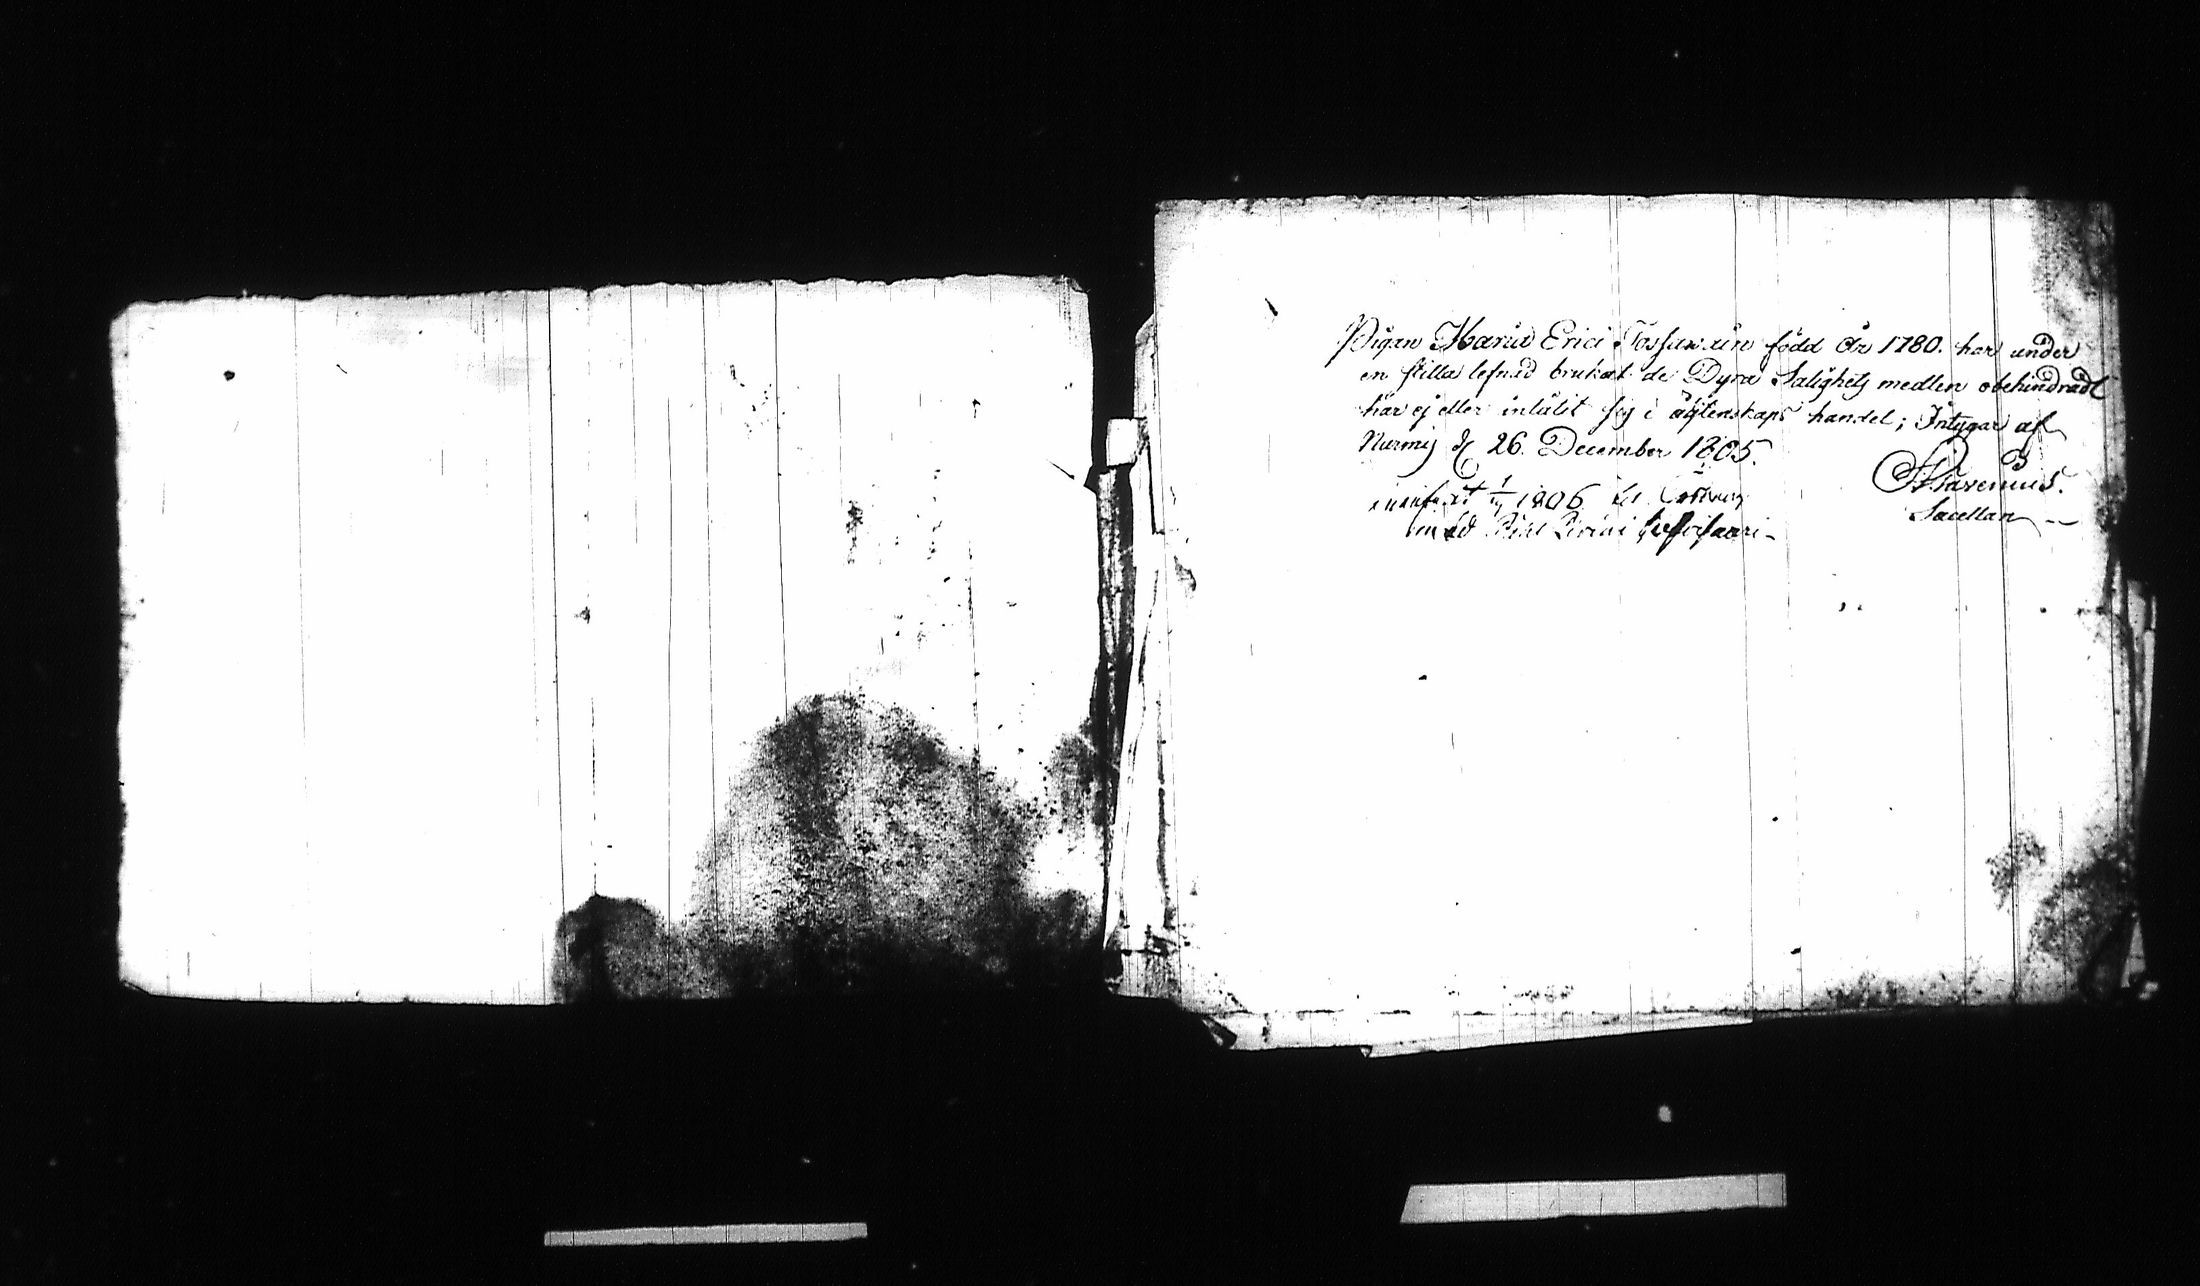 Pigan Maria Erici Tossavain född år 1780. har under
en stilla lefnad brukat de Dyra Salighets medlen obehindradt
har ej eller inlåtit sig i ägtenskaps handel; Intygar af
Nurmis d 26. December 1805.
Sacellan
1806
med